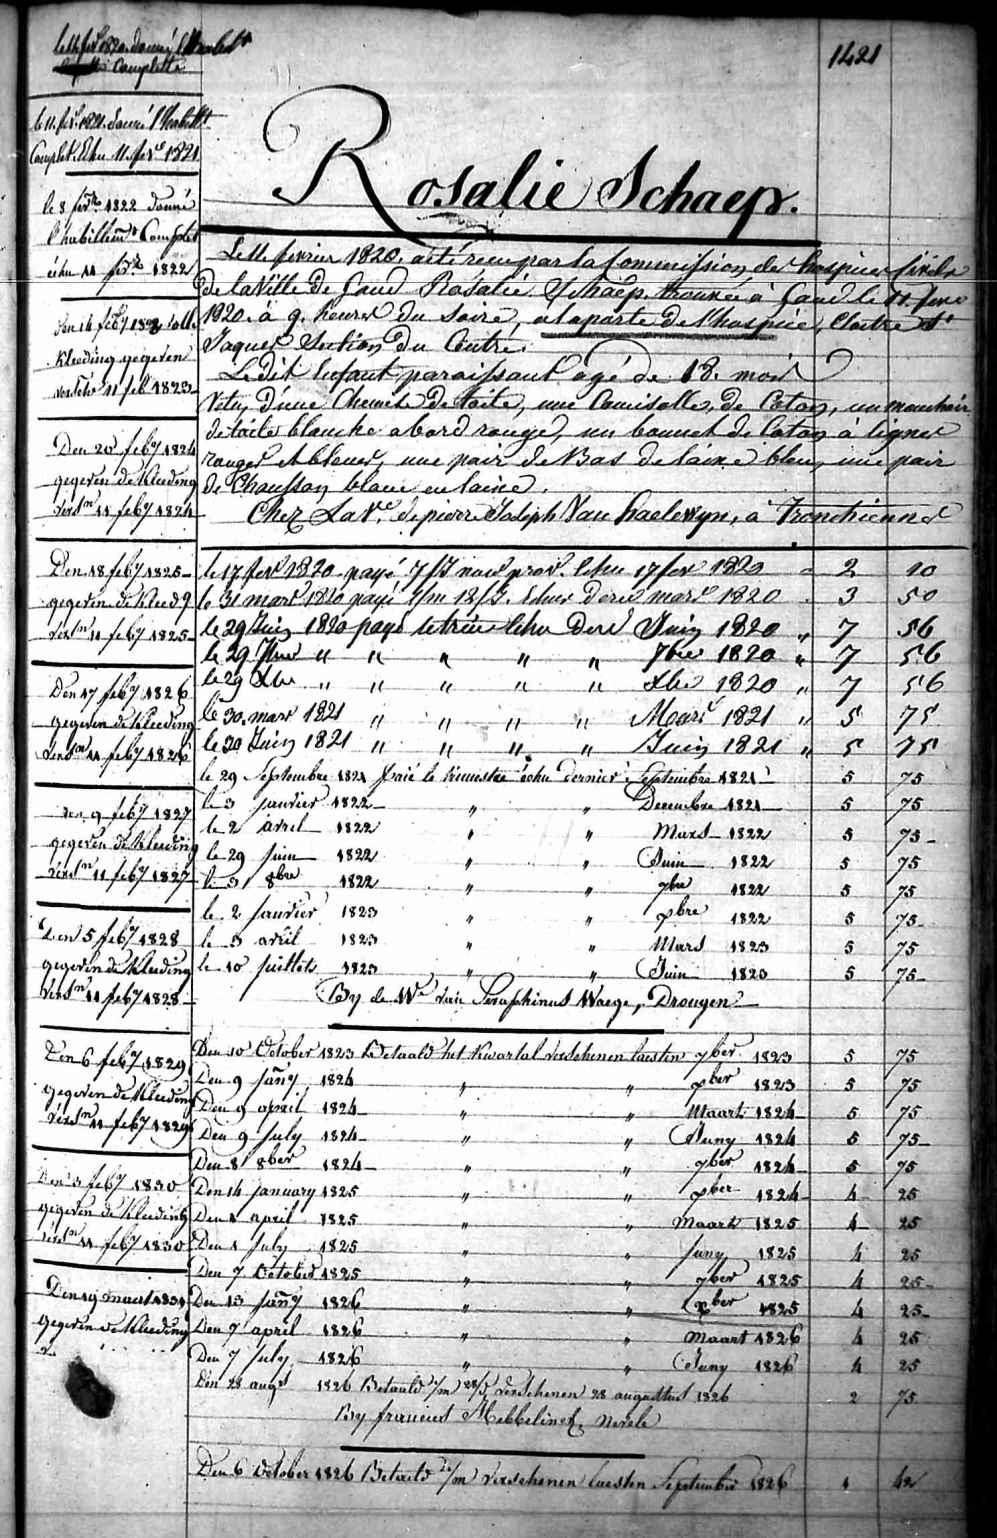 1421
Rosalie Schaep.
Le 11 fevrier 1820. a été recu par la Commission des hospices Civils
de la Ville de Gand Rosalie Schaep. trouvée à Gand le 11. fevr
1820. à 9. heures du Soire, a la porte de l'hospice, Cloitre St
Jaques Section du Centre.
Le dit Enfant paraissant agé de 18. mois
Vetu, d'une Chemise de toile, une Camisolle, de Coton, un mouchoir
de toile blanche a bord rouge, un bonnet de Coton à lignes
rouges et bleues, une pair de Bas de laine bleu, une pair
de Chausson blanc en laine.
Chez La Ve. de pierre Joseph Van haelewyn, à Tronchiennes
le 17 fevr 1820 payé nouv prov. Echu 17 fevr 1820 2 10
le 31 mars 1820 payé Echus dere mars 1820 3 50
le 29 Juin 1820 payé le trim Echu deré Juin 1820 " 7 56
le 29 7bre " " " " " 7bre 1820 " 7 56
le 29 Xbre " " " " " Xbre 1820 " 7 56
le 30. mars 1821 " " " " Mars 1821 " 5 75
le 30 Juin 1821 " " " " Juin 1821 " 5 75
le 29 Septembre 1821 paié le trimestre échu dernier Septembre 1821 5 75
le 3 janvier 1822 " " Decembre 1821 5 75
le 2 avril 1822 " " Mars 1822 5 75
le 29 juin 1822 " " Juin 1822 5 75
le 3 8bre 1822 " " 7bre 1822 5 75
le 2 janvier 1823 " " xbre 1822 5 75
le 3 avril 1823 " " Mars 1823 5 75
le 10 juillets 1823 " " Juin 1823 5 75
By de We van Seraphinus Waege, Drougen
Den 10 October 1823 Betaald het kwartal verschenen laesten 7ber 1823 5 75
Den 9 jany 1824 " " xber 1823 5 75
Den 9 april 1824 " " Maart 1824 5 75
Den 9 july 1824 " " Juny 1824 5 75
Den 8 8ber 1824 " " 7ber 1824 5 75
Den 14 january 1825 " " xber 1824 4 25
Den 1 april 1825 " " Maart 1825 4 25
Den 1 july 1825 " " juny 1825 4 25
Den 7 October 1825 " " 7ber 1825 4 25
Den 13 jany 1826 " " xber 1825 4 25
Den 7 april 1826 " " Maart 1826 4 25
Den 7 july 1826 " " Juny 1826 4 25
Den 28 augt 1826 Betaald verschenen 28 augustus 1826 2 75
By francius Mebbelinck, Nevele
Den 6 October 1826 Betaeld verschenen laesten September 1826 1 42
le 11. fevr 1820. donné l'habillt
Complette
le 11. fevr. 1821. donné l'habillt
Complet. Echu 11. fevr 1821
le 8 fevr 1822 donné
l'habillemt Complet
échu 11 fevr 1822
Den 14 feby 1823 volle
Kleeding gegeven
11 feb 1823
Den 20 feby 1824
gegeven de Kleeding
versn 11 feby 1824
Den 18 feby 1825
gegeven de Kleedg
versn 11 feby 1825
Den 17 feby 1826
gegeven de Kleeding
versn 11 feby 1826
Den 9 feby 1827
gegeven de Kleeding
versn 11 feby 1827
Den 5 feby 1828
gegeven de Kleeding
versn 11 feby 1828
Den 6 feby 1829
gegeven de Kleeding
versn 11 feby 1829
Den 3 feby 1830
gegeven de Kleeding
versn 11 feby 1830
Den 19 maart 1831
gegeven de Kleeding